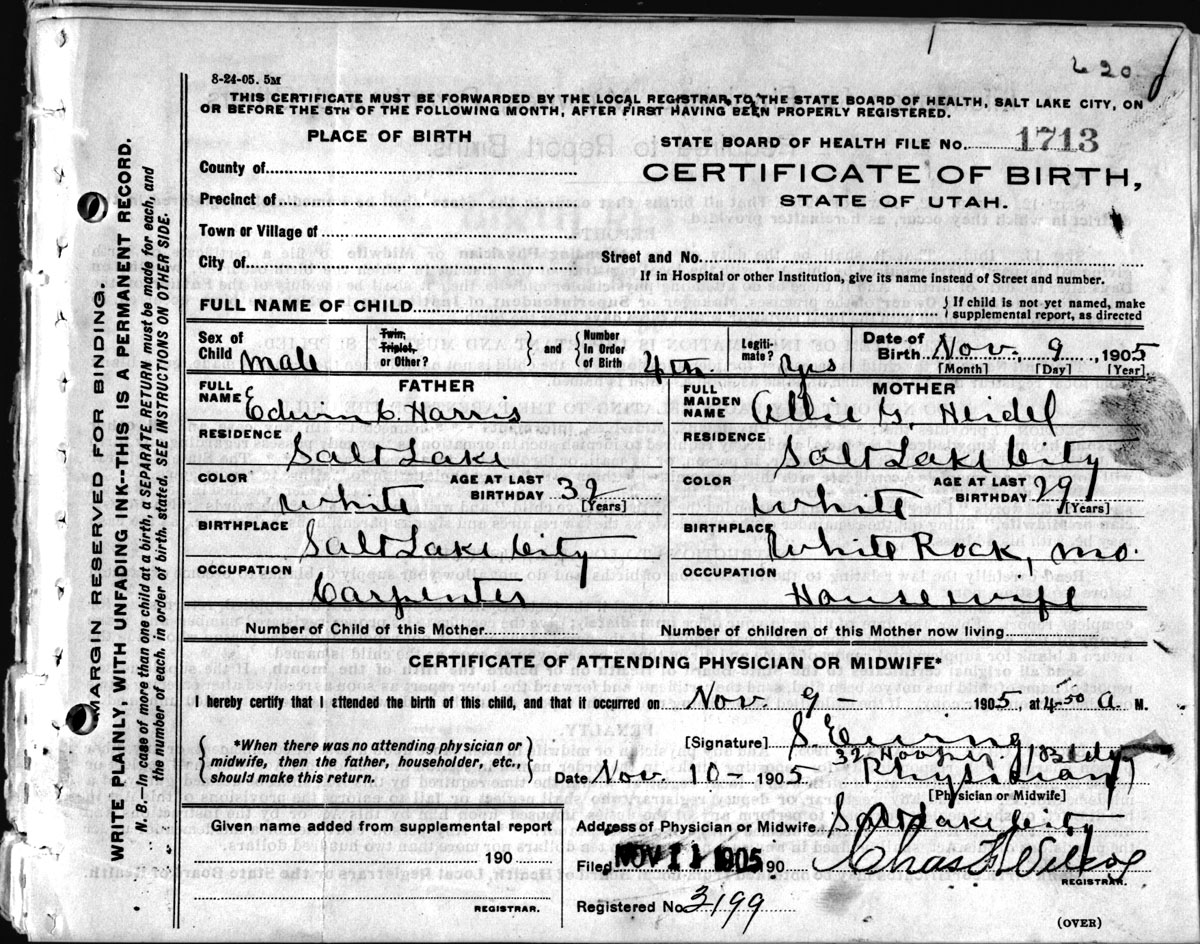 620
8-24-05. 5M
THIS CERTIFICATE MUST BE FORWARDED BY THE LOCAL REGISTRAR TO THE STATE BOARD OF HEALTH, SALT LAKE CITY, ON
OR BEFORE THE 5TH OF THE FOLLOWING MONTH, AFTER FIRST HAVING BEEN PROPERLY REGISTERED.
PLACE OF BIRTH
STATE BOARD OF HEALTH FILE No. 1713
County of
CERTIFICATE OF BIRTH,
Precinct of
STATE OF UTAH.
Town or Village of
City of
Street and No.
If in Hospital or other Institution, give its name instead of Street and number.
FULL NAME OF CHILD
{ If child is not yet named, make
supplemental report, as directed
Sex of Child male
Twin, Triplet, or Other? } and { Number in Order of Birth 4th
Legiti-mate? yes
Date of Birth Nov. 9, 1905
[Month] [Day] [Year]
FATHER
MOTHER
FULL NAME Edwin C. Harris
FULL MAIDEN NAME Allie G. Heidel
RESIDENCE Salt Lake
RESIDENCE Salt Lake City
COLOR White AGE AT LAST BIRTHDAY 32 [Years]
COLOR White AGE AT LAST BIRTHDAY 29 [Years]
BIRTHPLACE Salt Lake City
BIRTHPLACE White Rock, Mo.
OCCUPATION Carpenter
OCCUPATION Housewife
Number of Child of this Mother
Number of children of this Mother now living
CERTIFICATE OF ATTENDING PHYSICIAN OR MIDWIFE*
I hereby certify that I attended the birth of this child, and that it occurred on Nov. 9 - 1905, at 4-50 a M.
{ *When there was no attending physician or
midwife, then the father, householder, etc.,
should make this return. }
[Signature] S Ewing
32 Hooper Bldg
Date Nov. 10 - 1905 Physician
[Physician or Midwife]
Given name added from supplemental report
Address of Physician or Midwife Salt Lake City
190
Filed NOV 11 1905 190 Chas F Wilcox
REGISTRAR.
REGISTRAR.
Registered No. 3199
(OVER)
MARGIN RESERVED FOR BINDING.
WRITE PLAINLY, WITH UNFADING INK--THIS IS A PERMANENT RECORD.
N. B.--In case of more than one child at a birth, a SEPARATE RETURN must be made for each, and
the number of each, in order of birth, stated. SEE INSTRUCTIONS ON OTHER SIDE.